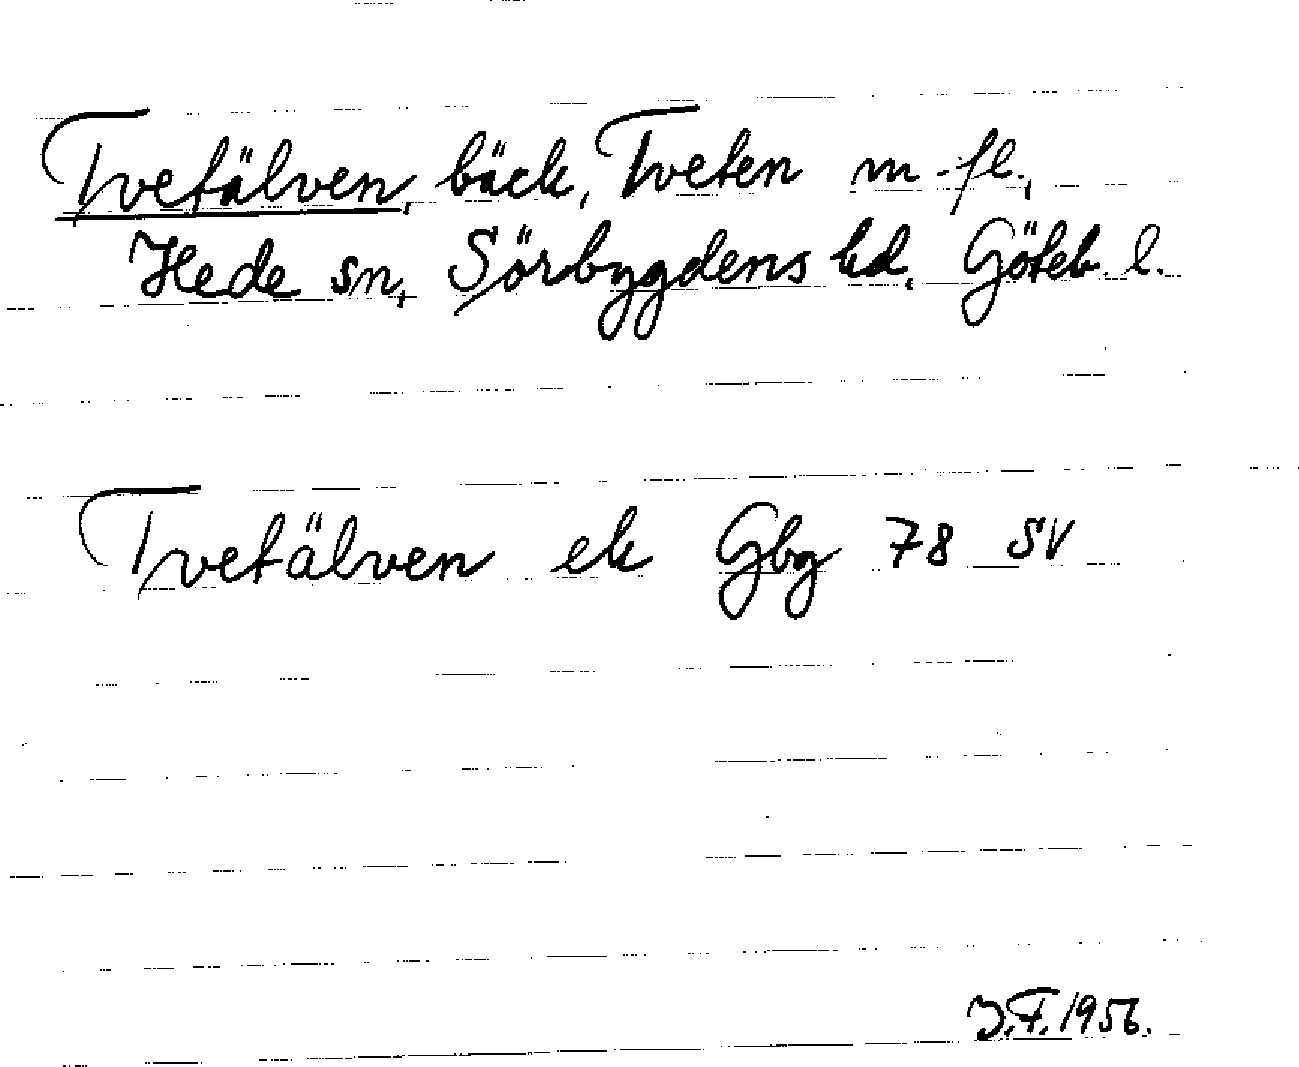 Tvetälven, bäck, Tveten m. fl.,
Hede sn, Sörbygdens hd, Göteb. l.
Tvetälven ek Gbg 78 SV
J.F. 1956.